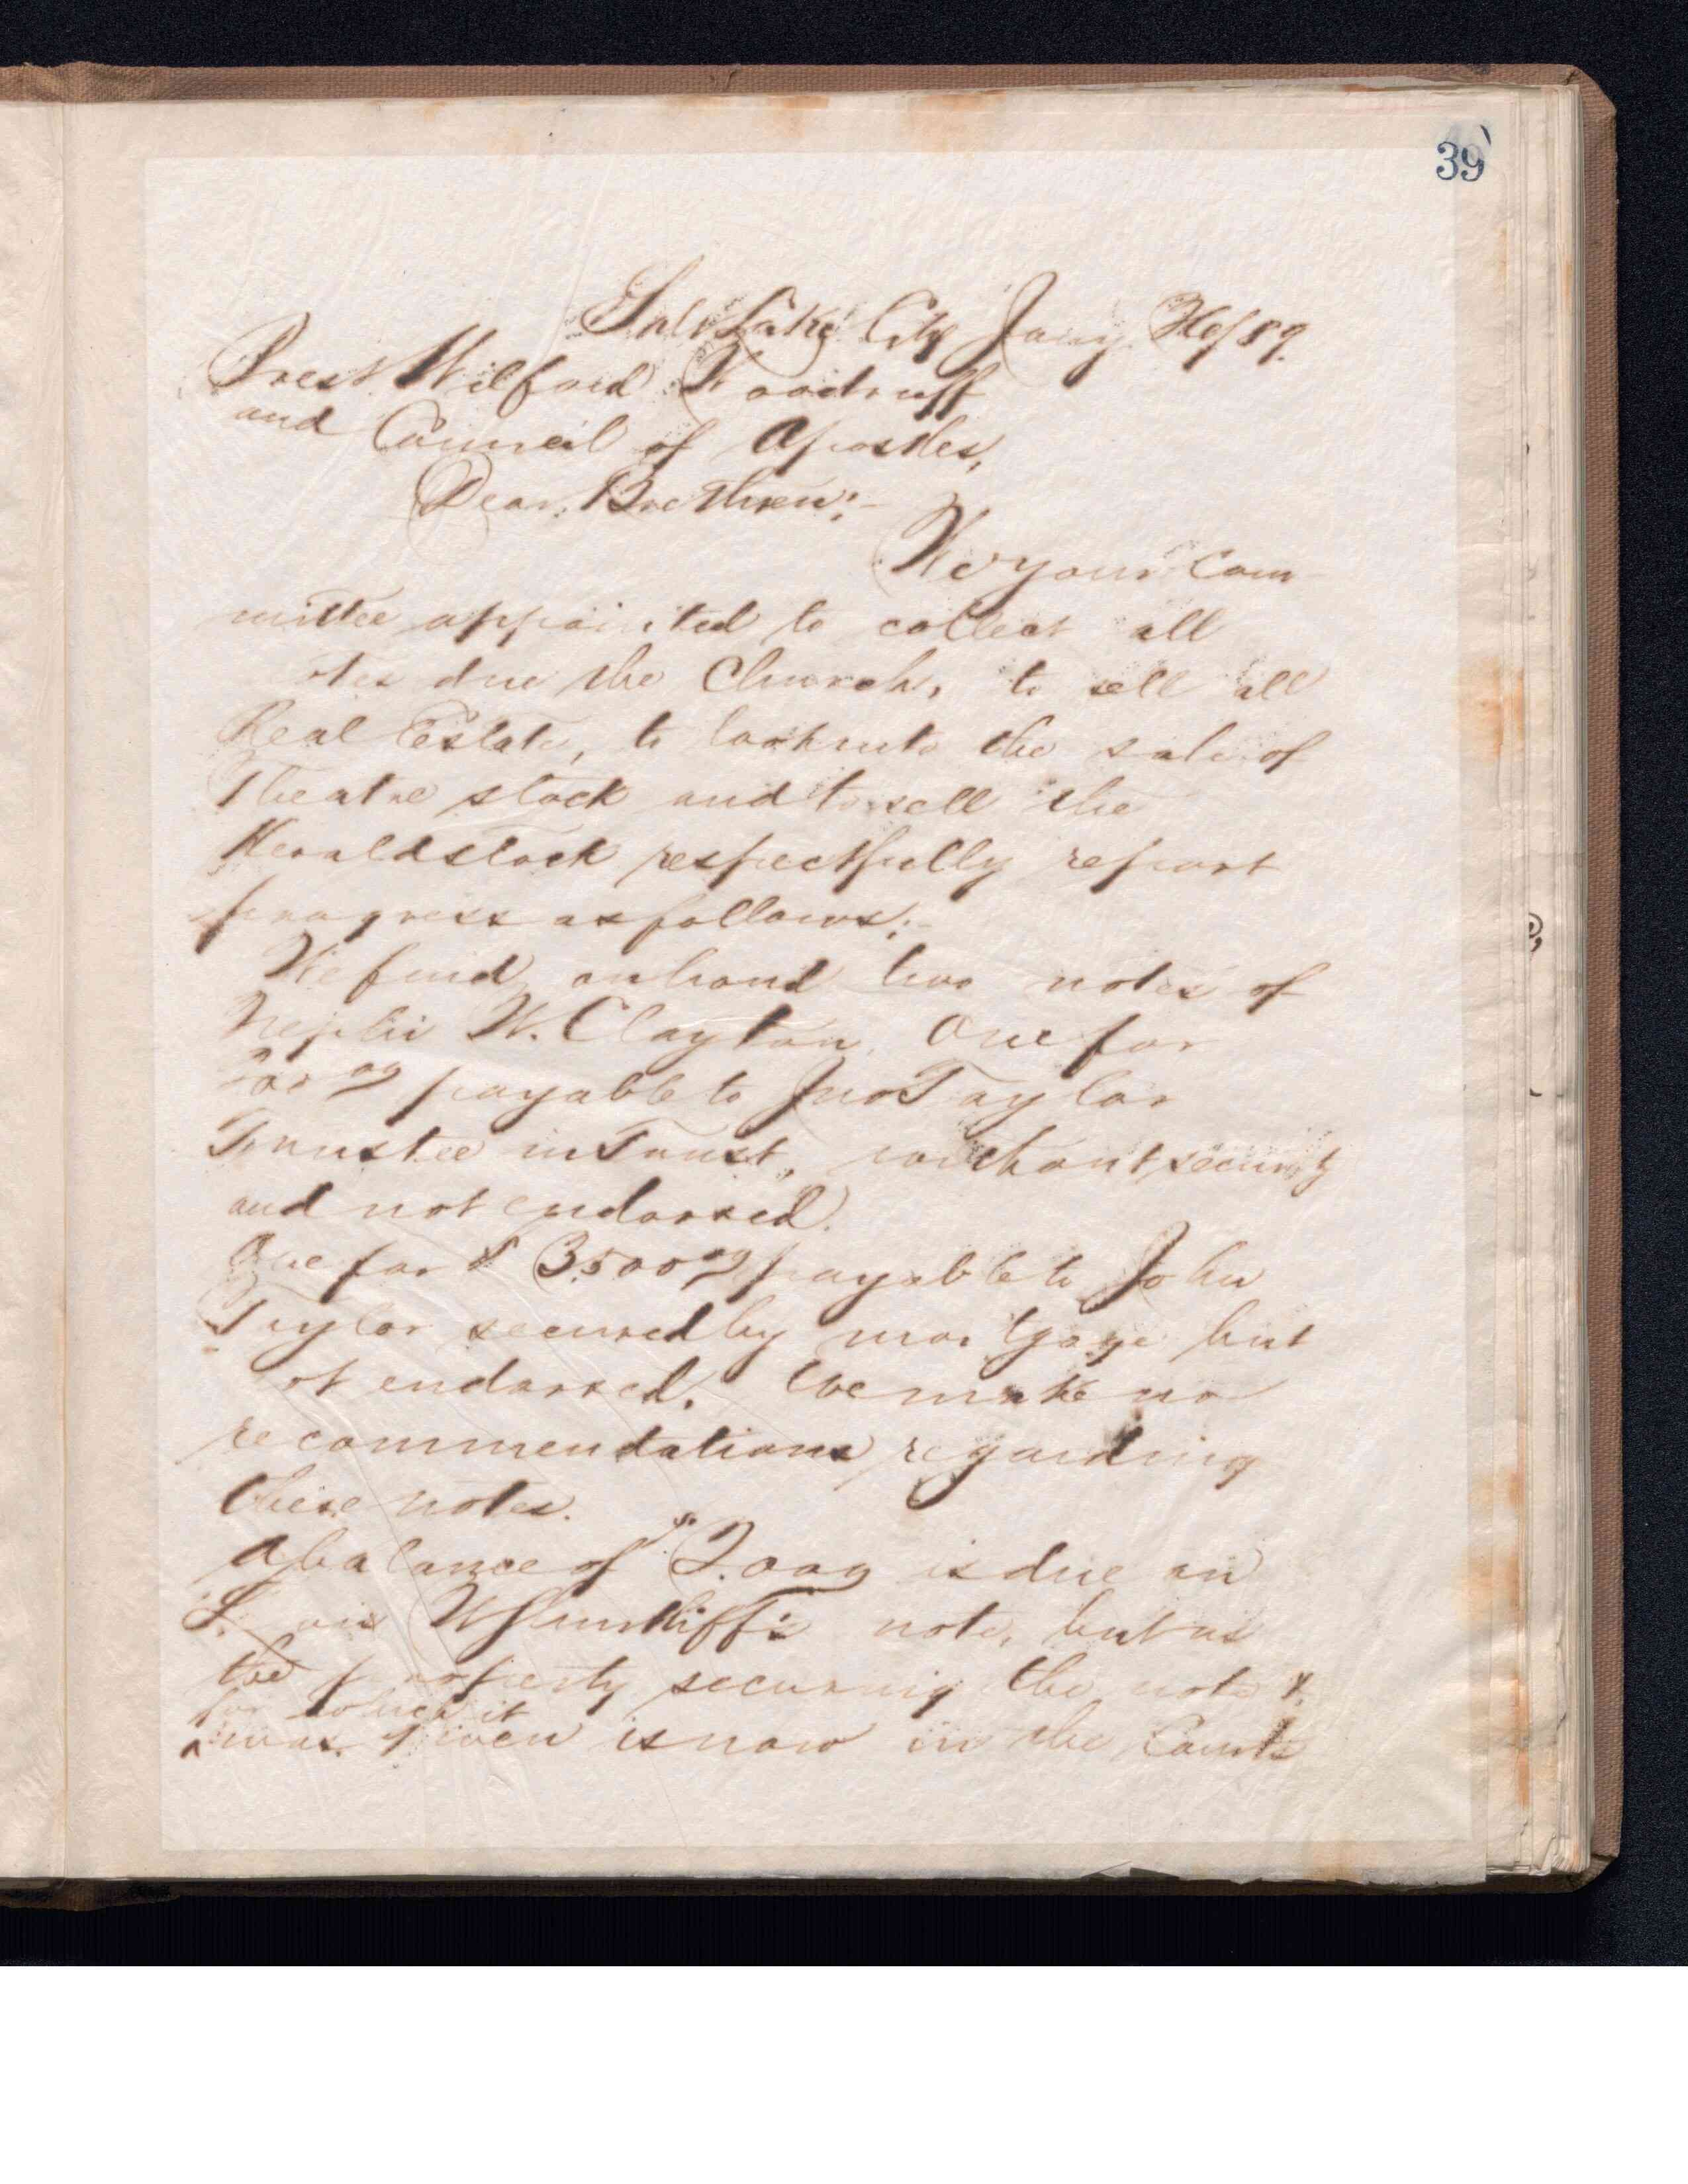 39
Salt Lake City Jany /89.
Prest Wilford Woodruff
and Council of Apostles,
Dear Brethren:-
We your Com-
mittee appointed to collect all
otes due the Church, to sell all
Real Estate, to look into the sale of
Theatre stock and to sell the
Herald stock respectfully report
progress as follows:-
We find on hand two notes of
Nephi W. Clayton. One for
payable to Jno Taylor
Trustee in Trust, without security
and not endorsed.
One for $3.500 00 payable to John
Taylor secured by mortgage but
ot endorsed. We make no
recommendations regarding
these notes.
A balance of $ is due on
note, but as
the property securing the note &
for which it
^ was given is now in the Courts